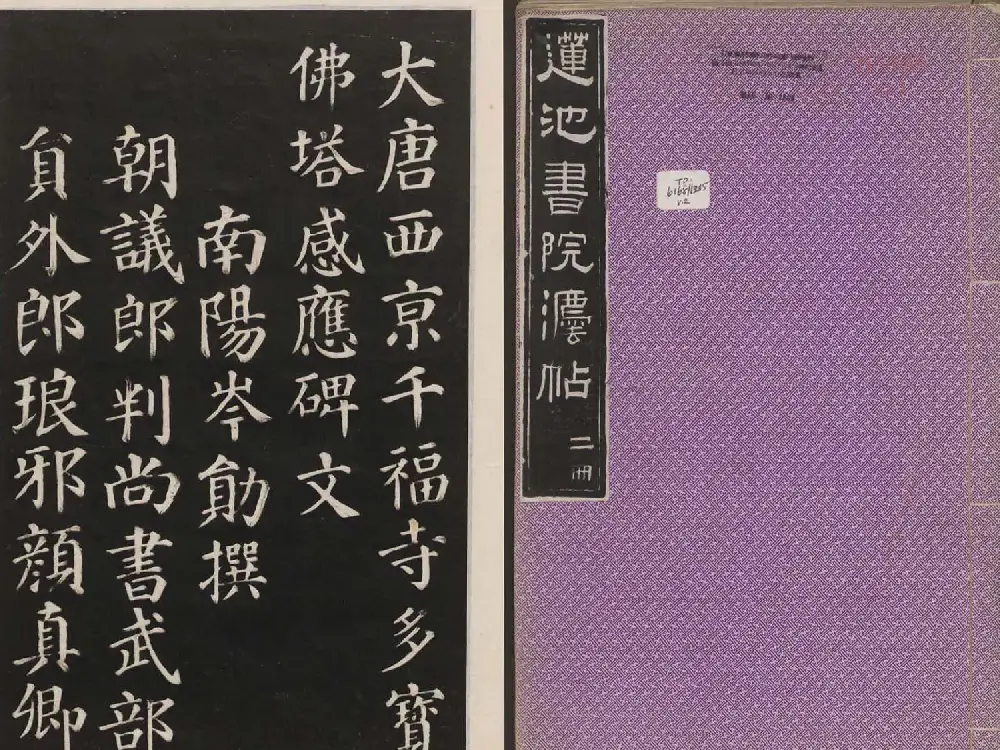 蓮池書院灋帖
二冊
v.2
大唐西亰千福寺多寶
佛塔感應碑文
南陽岑勛撰
朝議郎判尚書武部
貟外郎琅邪顏真卿